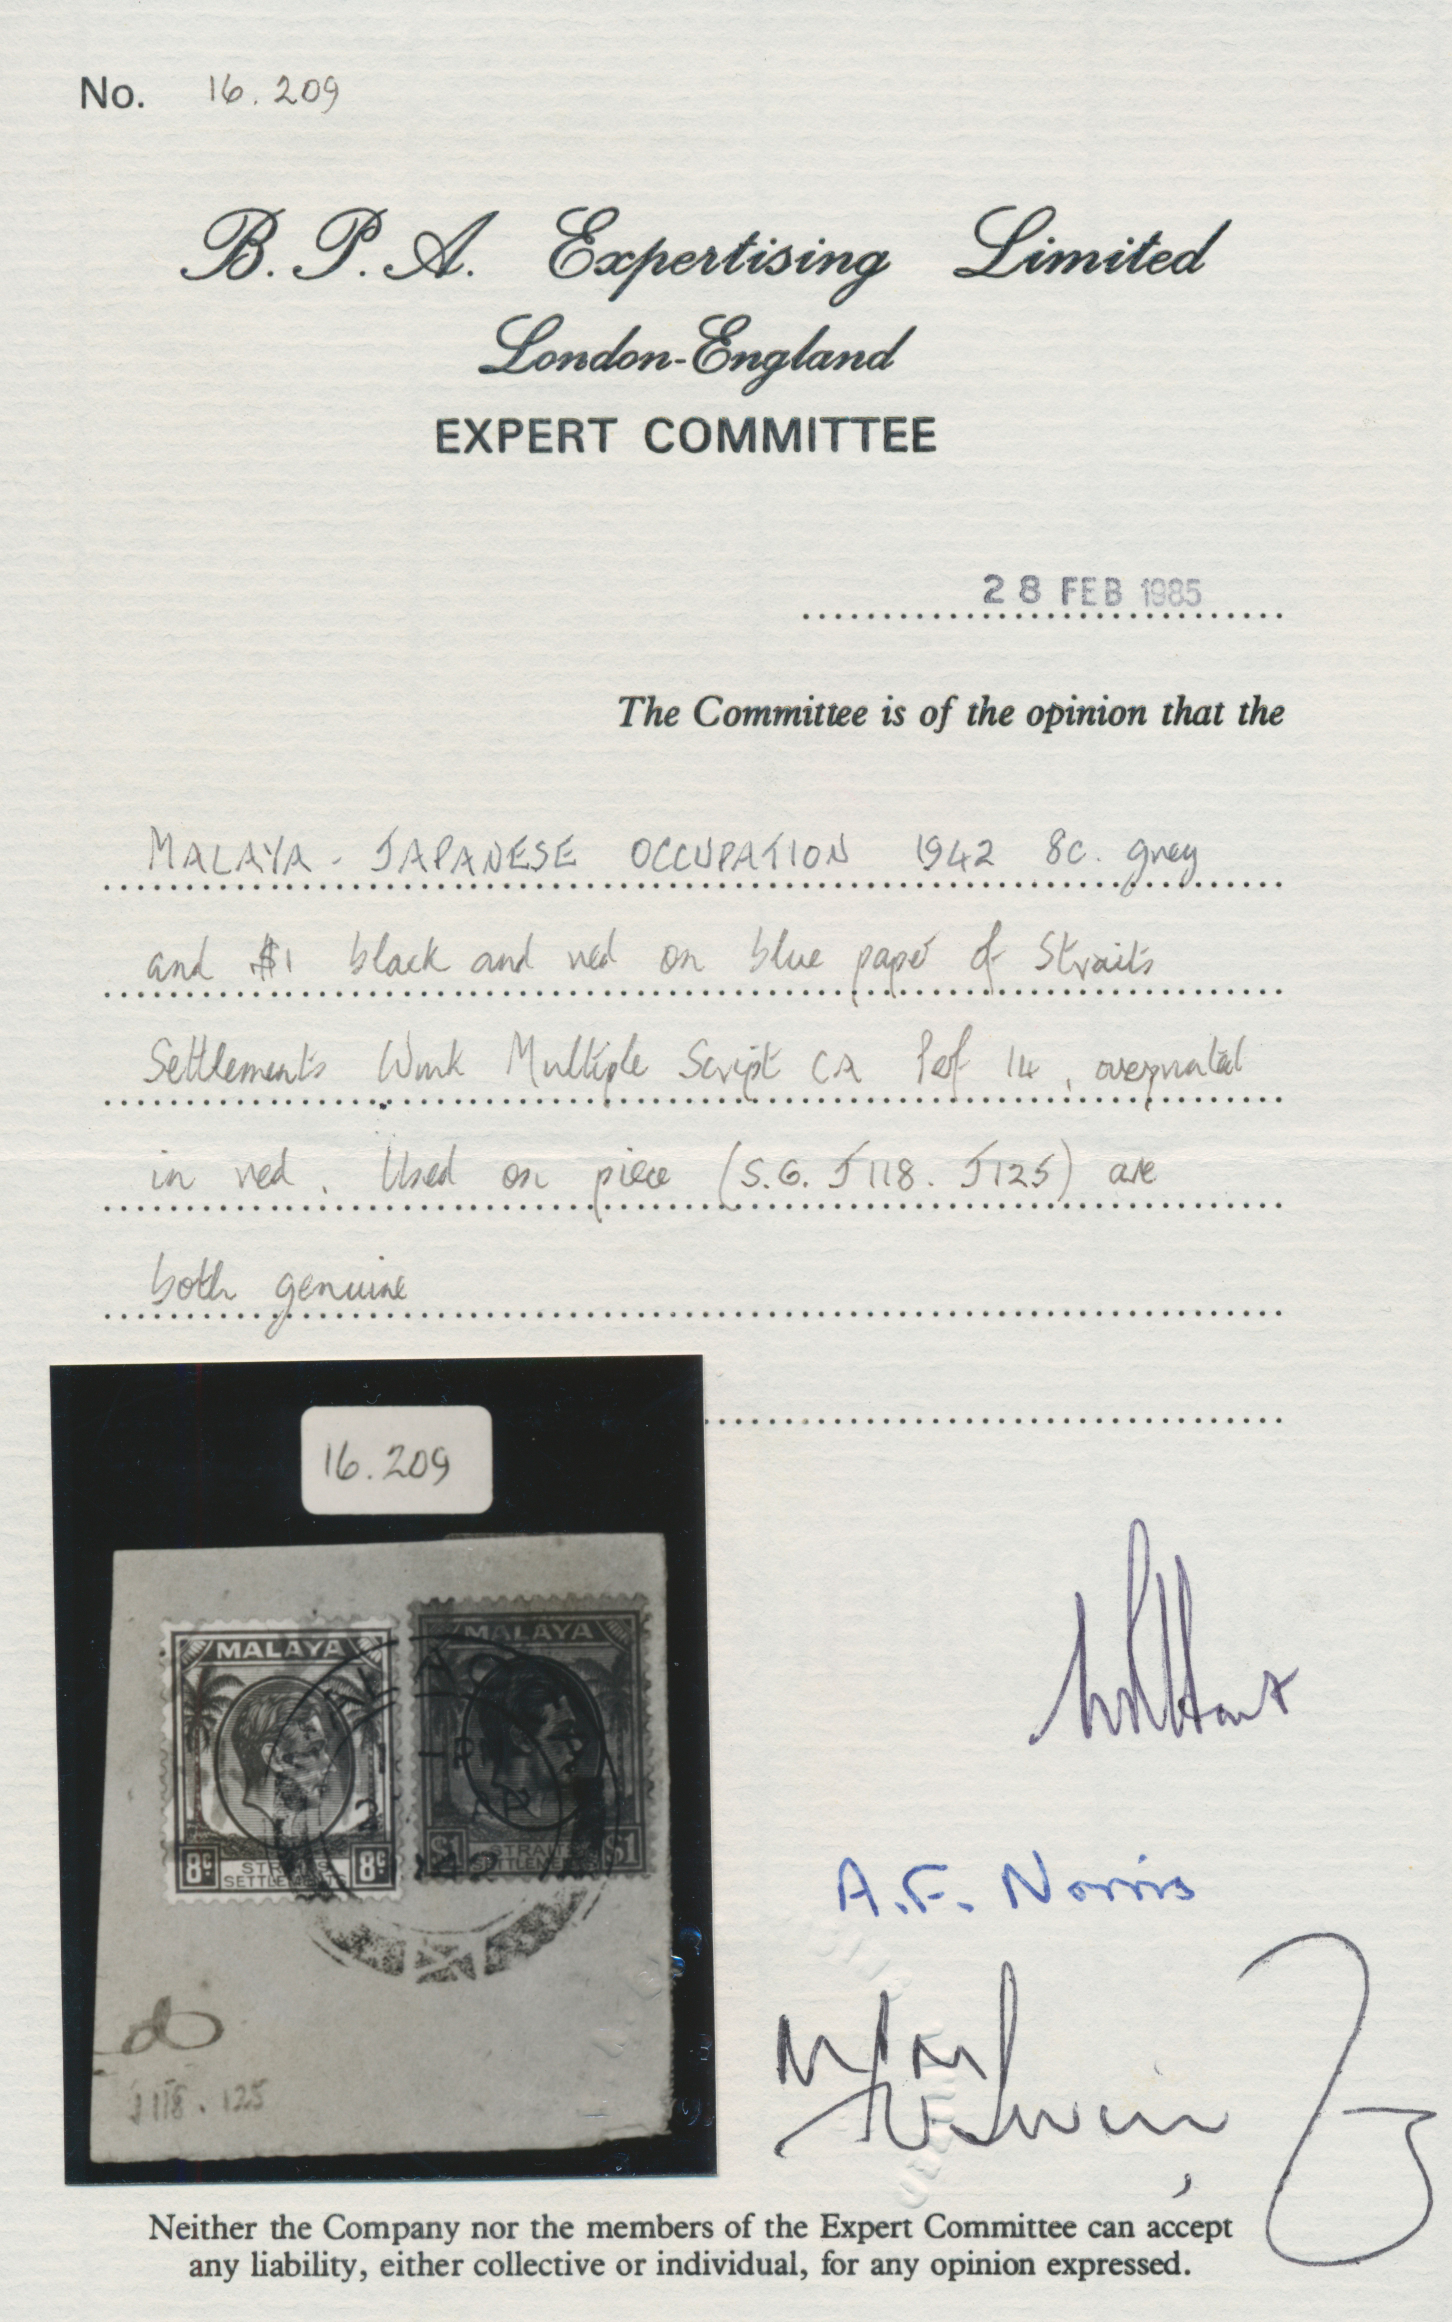 No. 16.209
B.P.A. Expertising Limited
London-England
EXPERT COMMITTEE
28 FEB 1985
The Committee is of the opinion that the
MALAYA - JAPANESE OCCUPATION 1942 8c. grey
and $1 black and red on blue paper of Straits
Settlements Wmk Multiple Script CA Perf 14, overprinted
in red. Used on piece (S.G. J118. J125) are
both genuine
16.209
MALAYA
MALAYA
8c
STRAITS
SETTLEMENTS
8c
$1
STRAITS
SETTLEMENTS
$1
d
J118. 125
A.F. Norris
Neither the Company nor the members of the Expert Committee can accept
any liability, either collective or individual, for any opinion expressed.